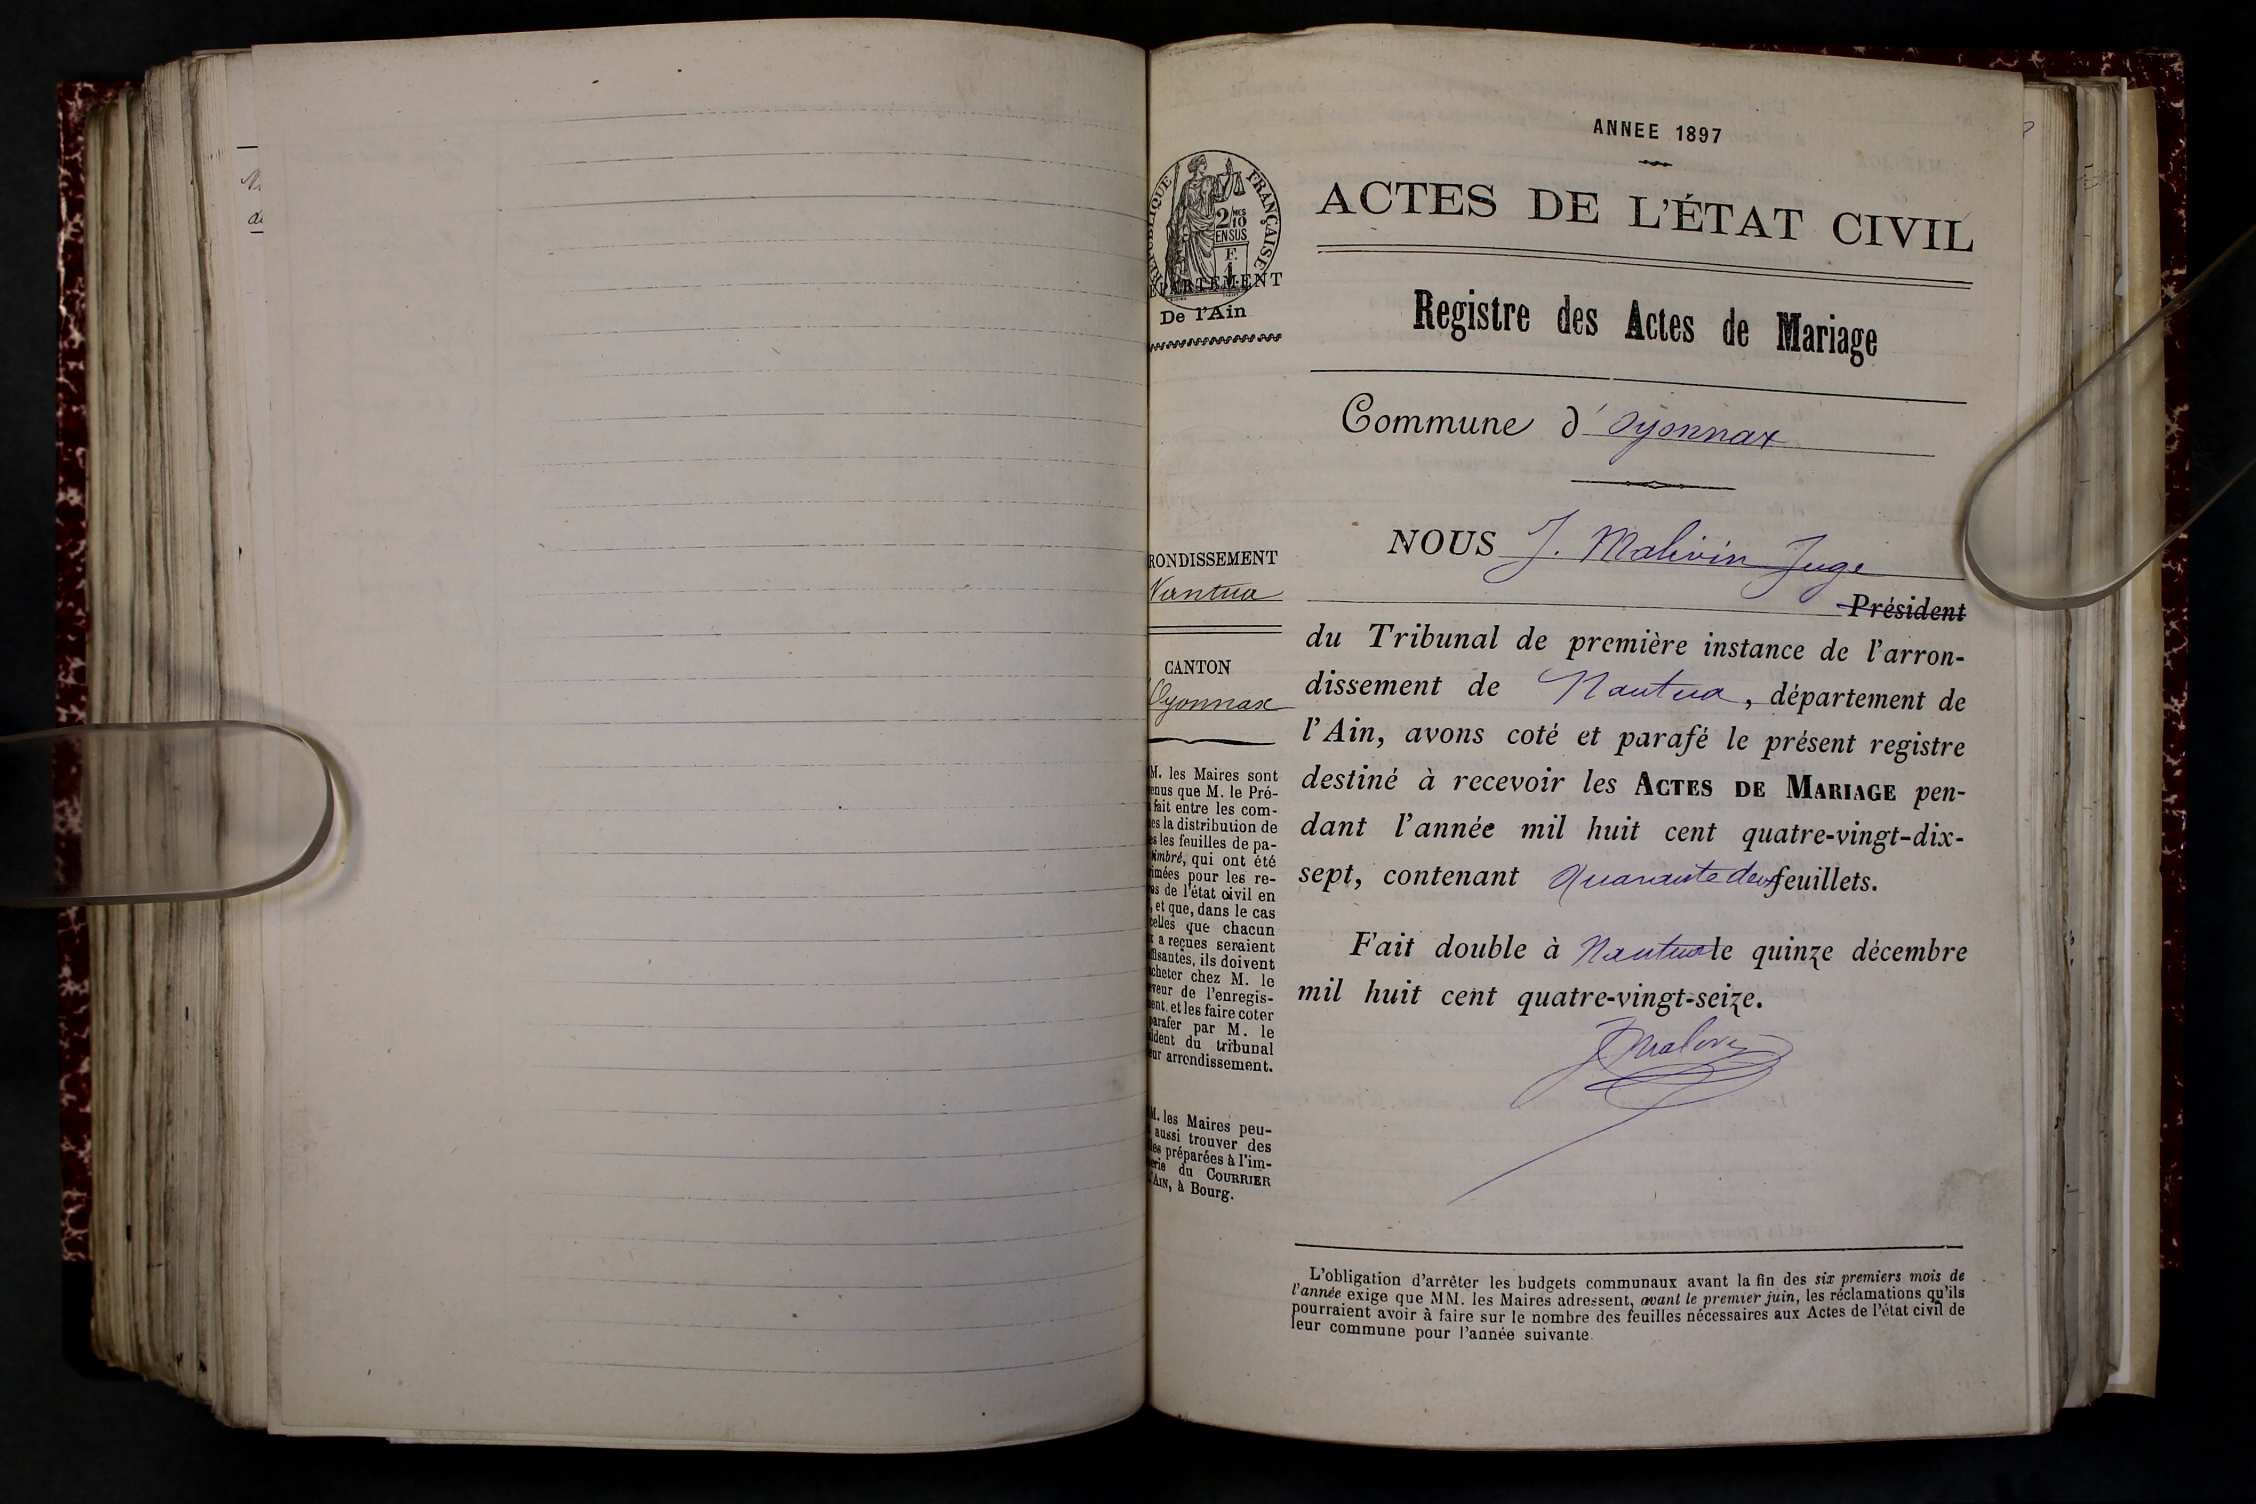 ANNEE 1897
ACTES DE L'ÉTAT CIVIL
RÉPUBLIQUE FRANÇAISE
2/10
EN SUS
F.
1
DÉPARTEMENT
De l'Ain
Registre des Actes de Mariage
Commune d'Oyonnax
NOUS J. Malivin Juge
Président
du Tribunal de première instance de l'arron-
dissement de Nantua, département de
l'Ain, avons coté et parafé le présent registre
destiné à recevoir les ACTES DE MARIAGE pen-
dant l'année mil huit cent quatre-vingt-dix-
sept, contenant Quarante deux feuillets.
Fait double à Nantua le quinze décembre
mil huit cent quatre-vingt-seize.
RONDISSEMENT
Nantua
CANTON
Oyonnax
M. les Maires sont
enus que M. le Pré-
fait entre les com-
es la distribution de
es les feuilles de pa-
timbré, qui ont été
rimées pour les re-
es de l'état civil en
, et que, dans le cas
celles que chacun
x a reçues seraient
ffisantes, ils doivent
cheter chez M. le
veur de l'enregis-
ent. et les faire coter
parafer par M. le
ident du tribunal
eur arrondissement.
M. les Maires peu-
aussi trouver des
les préparées à l'im-
erie du COURRIER
L'AIN, à Bourg.
L'obligation d'arrêter les budgets communaux avant la fin des six premiers mois de
l'année exige que MM. les Maires adressent, avant le premier juin, les réclamations qu'ils
pourraient avoir à faire sur le nombre des feuilles nécessaires aux Actes de l'état civil de
leur commune pour l'année suivante.